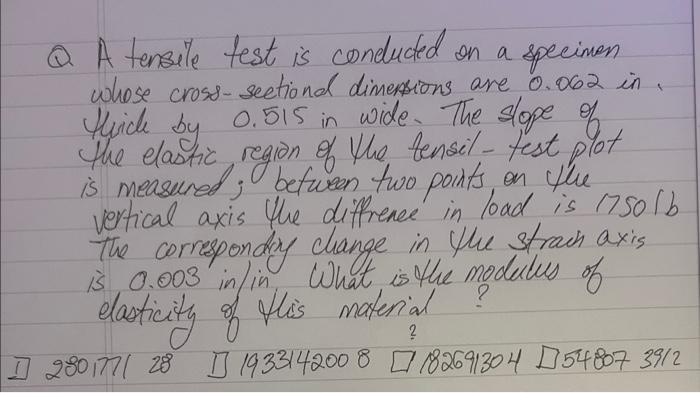 Q A tensile test is conducted on a specimen
whose cross-sectional dimensions are 0.062 in.
thick by 0.515 in wide. The slope of
the elastic region of the tensil-test plot
is measured; between two points on the
vertical axis the diffrence in load is 1750 lb
The corresponding change in the strain axis
is 0.003 in/in What is the modulus of
elasticity of this material ?
?
28017771 28 1933142008 182691304 54807 3912